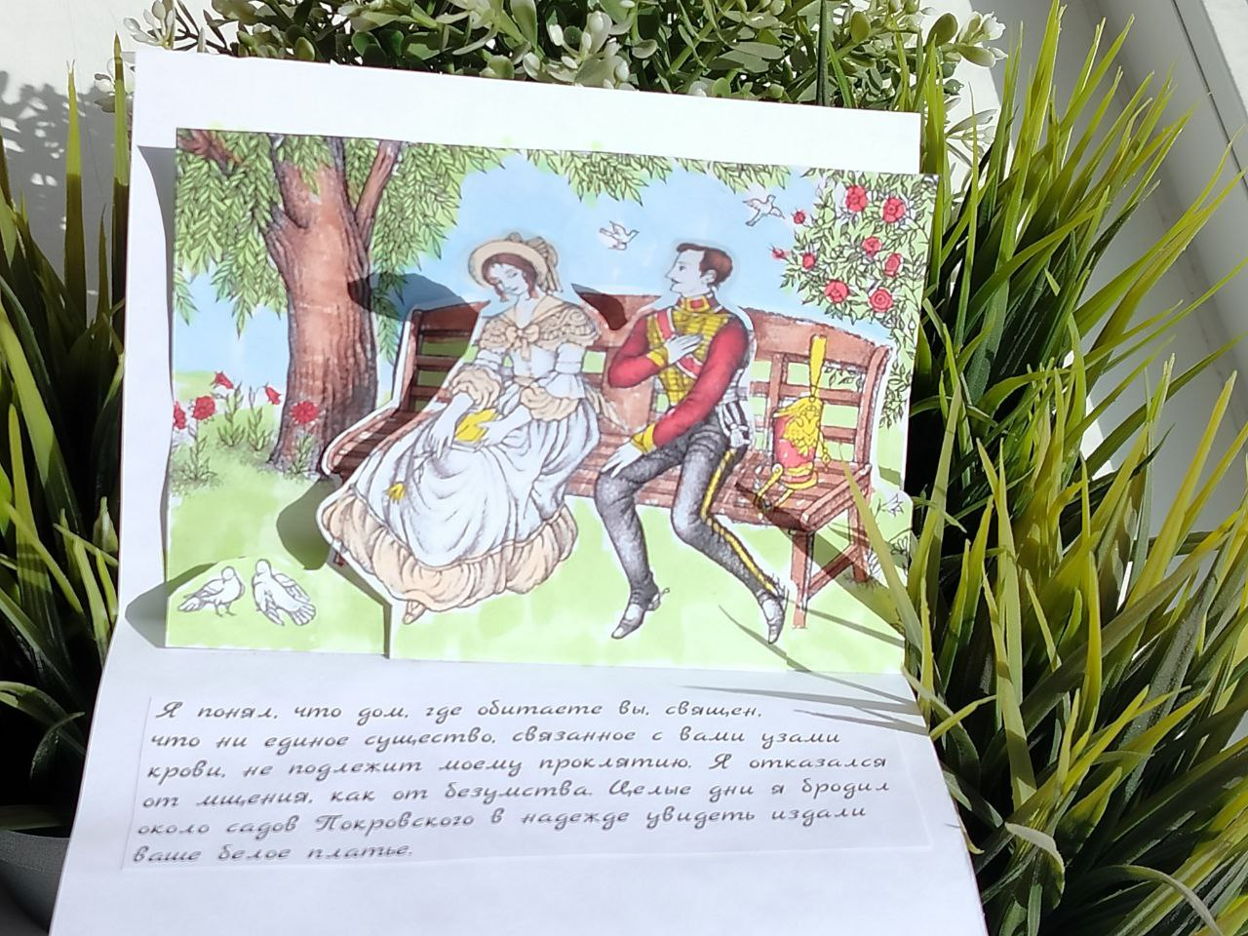 Я понял, что дом, где обитаете вы, священ,
что ни единое существо, связанное с вами узами
крови, не подлежит моему проклятию. Я отказался
от мщения, как от безумства. Целые дни я бродил
около садов Покровского в надежде увидеть издали
ваше белое платье.